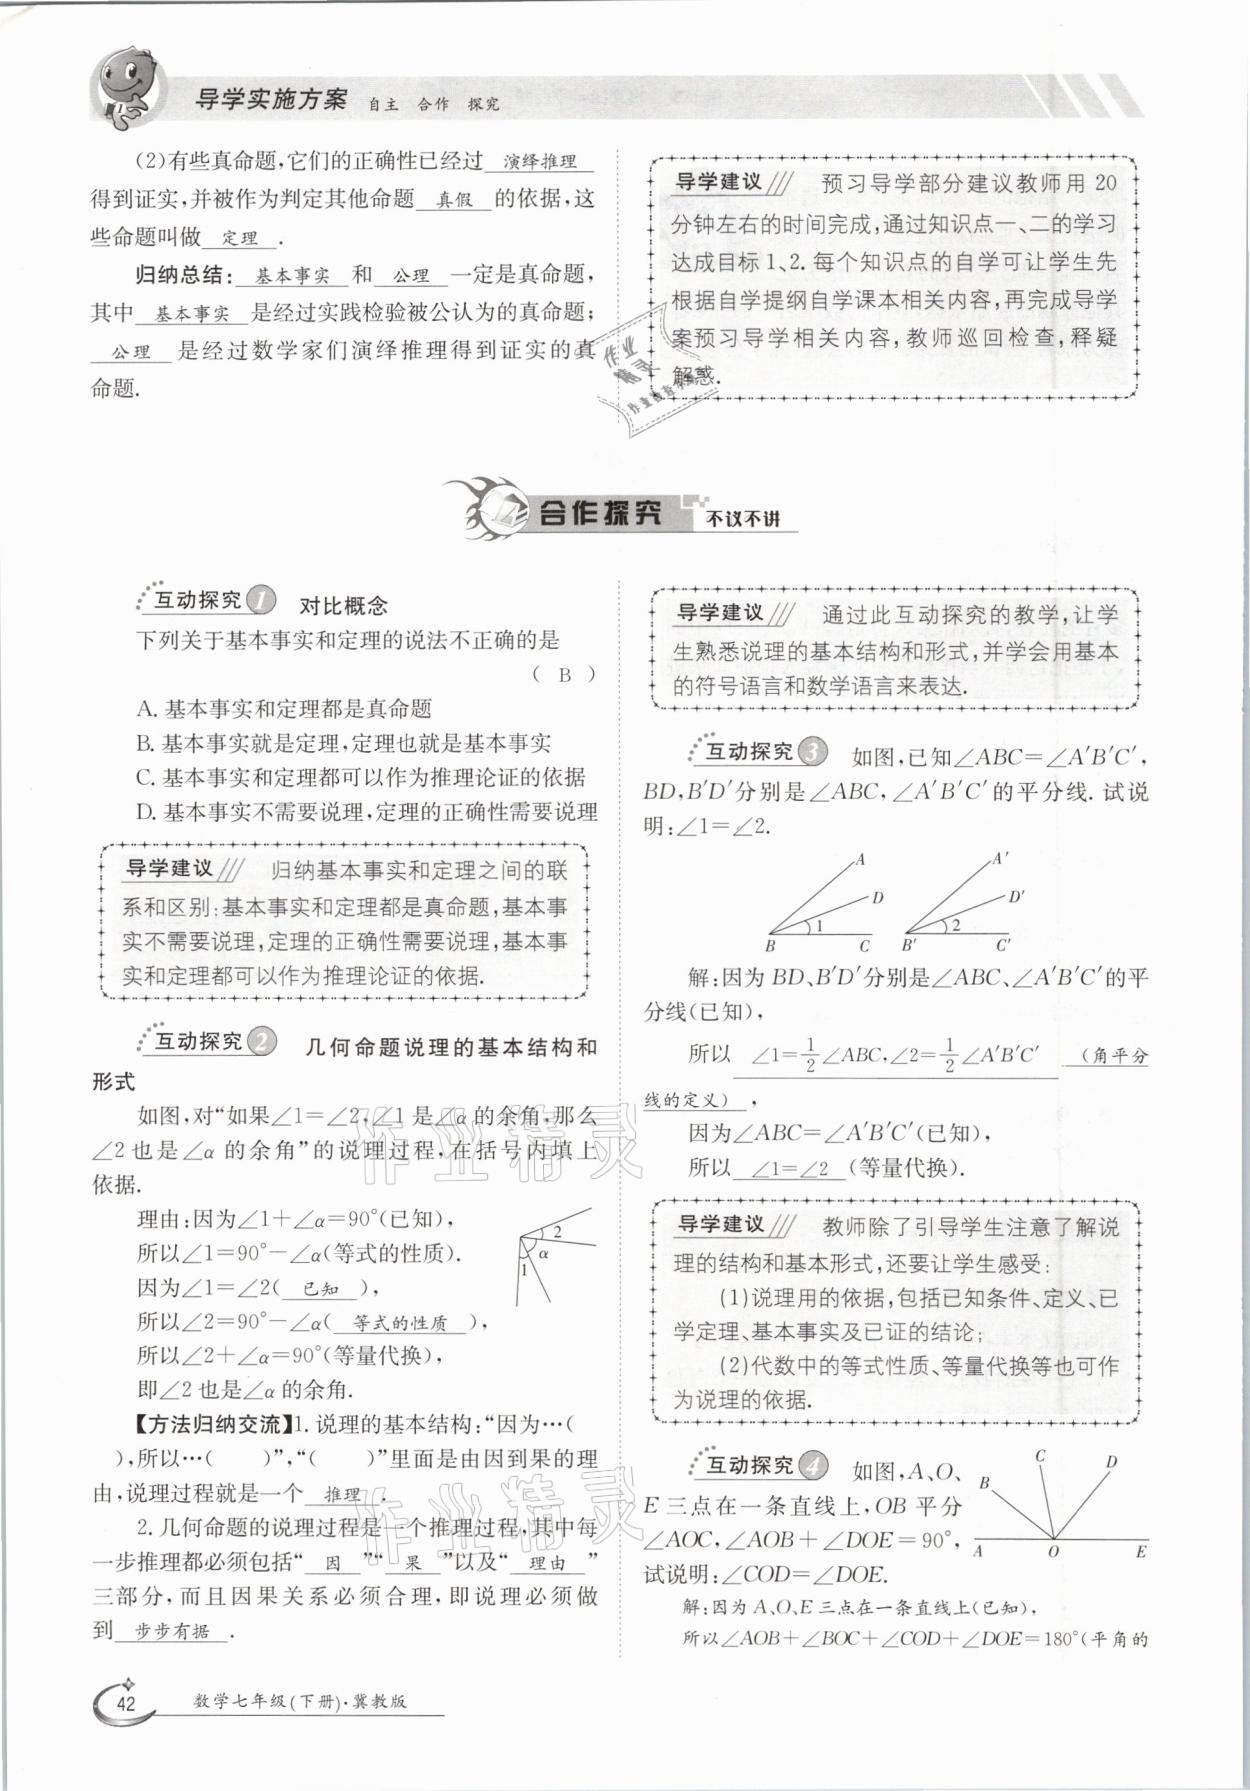 导学实施方案 自主 合作 探究
(2)有些真命题,它们的正确性已经过 演绎推理
得到证实,并被作为判定其他命题 真假 的依据,这
些命题叫做 定理 .
归纳总结: 基本事实 和 公理 一定是真命题,
其中 基本事实 是经过实践检验被公认为的真命题;
公理 是经过数学家们演绎推理得到证实的真
命题.
导学建议 预习导学部分建议教师用 20
分钟左右的时间完成,通过知识点一、二的学习
达成目标 1、2. 每个知识点的自学可让学生先
根据自学提纲自学课本相关内容,再完成导学
案预习导学相关内容,教师巡回检查,释疑
解惑.
作业
精灵
合作探究 不议不讲
互动探究 1 对比概念
下列关于基本事实和定理的说法不正确的是
( B )
A. 基本事实和定理都是真命题
B. 基本事实就是定理,定理也就是基本事实
C. 基本事实和定理都可以作为推理论证的依据
D. 基本事实不需要说理,定理的正确性需要说理
导学建议 归纳基本事实和定理之间的联
系和区别:基本事实和定理都是真命题,基本事
实不需要说理,定理的正确性需要说理,基本事
实和定理都可以作为推理论证的依据.
互动探究 2 几何命题说理的基本结构和
形式
如图,对“如果∠1=∠2,∠1 是∠α 的余角,那么
∠2 也是∠α 的余角”的说理过程,在括号内填上
依据.
理由:因为∠1+∠α=90°(已知),
所以∠1=90°-∠α(等式的性质).
因为∠1=∠2( 已知 ),
所以∠2=90°-∠α( 等式的性质 ),
所以∠2+∠α=90°(等量代换),
即∠2 也是∠α 的余角.
2
α
1
【方法归纳交流】1. 说理的基本结构:“因为…(
),所以…( )”,“( )”里面是由因到果的理
由,说理过程就是一个 推理 .
2. 几何命题的说理过程是一个推理过程,其中每
一步推理都必须包括“ 因 ”“ 果 ”以及“ 理由 ”
三部分,而且因果关系必须合理,即说理必须做
到 步步有据 .
导学建议 通过此互动探究的教学,让学
生熟悉说理的基本结构和形式,并学会用基本
的符号语言和数学语言来表达.
互动探究 3 如图,已知∠ABC=∠A′B′C′,
BD,B′D′分别是∠ABC,∠A′B′C′的平分线. 试说
明:∠1=∠2.
A
D
1
B C
A′
D′
2
B′ C′
解:因为 BD、B′D′分别是∠ABC、∠A′B′C′的平
分线(已知),
所以 ∠1=1/2∠ABC,∠2=1/2∠A′B′C′ (角平分
线的定义) ,
因为∠ABC=∠A′B′C′(已知),
所以 ∠1=∠2 (等量代换).
导学建议 教师除了引导学生注意了解说
理的结构和基本形式,还要让学生感受:
(1)说理用的依据,包括已知条件、定义、已
学定理、基本事实及已证的结论;
(2)代数中的等式性质、等量代换等也可作
为说理的依据.
互动探究 4 如图,A、O、
E 三点在一条直线上,OB 平分
∠AOC,∠AOB+∠DOE=90°,
试说明:∠COD=∠DOE.
B C D
A O E
解:因为 A、O、E 三点在一条直线上(已知),
所以∠AOB+∠BOC+∠COD+∠DOE=180°(平角的
作业精灵
作业精灵
42 数学七年级(下册)·冀教版